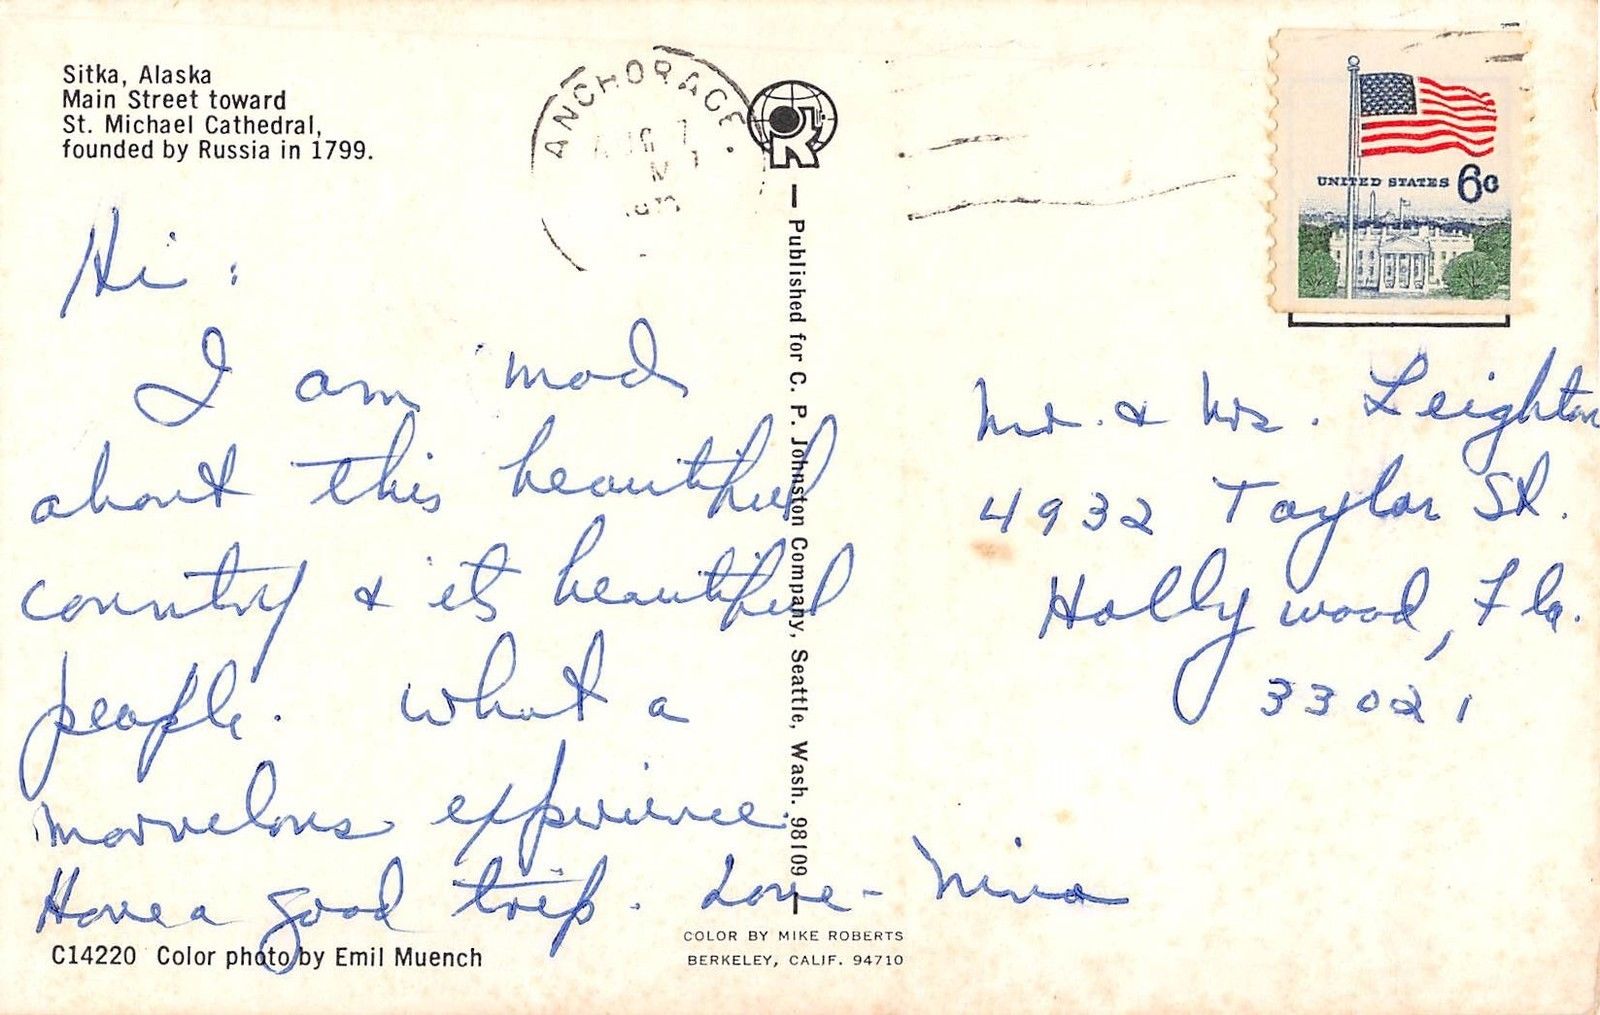 Sitka, Alaska
Main Street toward
St. Michael Cathedral,
founded by Russia in 1799.
ANCHORAGE
UNITED STATES 6c
Hi:
I am mad
about this beautiful
country & its beautiful
people. What a
marvelous experience.
Have a good trip. Love - Nina
Mr. & Mrs. Leighton
4932 Taylor St.
Hollywood, Fla.
33021
Published for C. P. Johnston Company, Seattle, Wash. 98109
C14220 Color photo by Emil Muench
COLOR BY MIKE ROBERTS
BERKELEY, CALIF. 94710